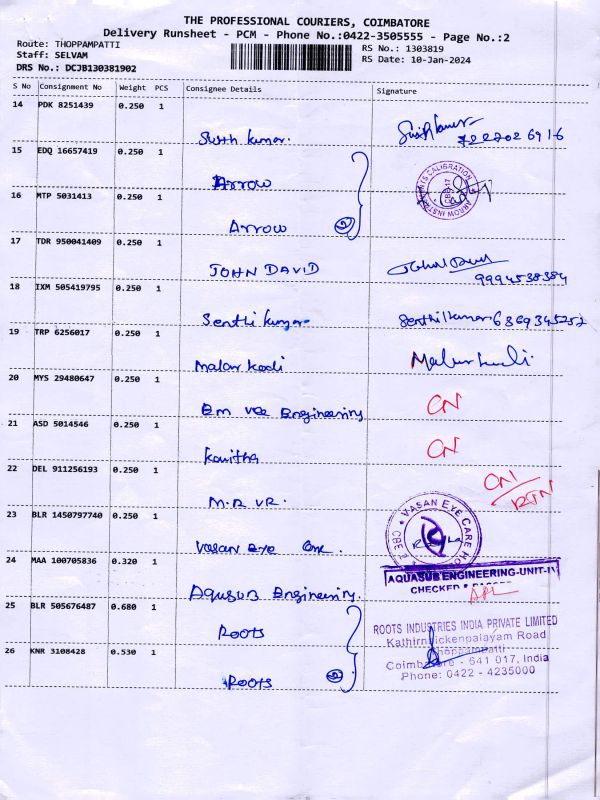 THE PROFESSIONAL COURIERS, COIMBATORE
Delivery Runsheet - PCM - Phone No.:0422-3505555 - Page No.:2
Route: THOPPAMPATTI
Staff: SELVAM
DRS No.: DCJB130381902
RS No.: 1303819
RS Date: 10-Jan-2024
S No Consignment No Weight PCS Consignee Details Signature
14 PDK 8251439 0.250 1
15 EDQ 16657419 0.250 1
Arrow
ARROW INSTRUMENTS CALIBRATION
16 MTP 5031413 0.250 1
Arrow
17 TDR 950041409 0.250 1
JOHN DAVID
9994538384
18 IXM 505419795 0.250 1
Senthil kumar 6369345252
19 TRP 6256017 0.250 1
Malar kodi
20 MYS 29480647 0.250 1
Engineering CN
21 ASD 5014546 0.250 1
Kavitha CN
22 DEL 911256193 0.250 1
M.R VR. CN/
RTN
23 BLR 1450797740 0.250 1
Vasan Eye Care
VASAN EYE CARE
24 MAA 100705836 0.320 1
Aqusub Engineering.
AQUASUB ENGINEERING-UNIT-IV
CHECKED
25 BLR 505676487 0.680 1
Roots 2
ROOTS INDUSTRIES INDIA PRIVATE LIMITED
Kathirnaickenpalayam Road
Thoppampatti
Coimbatore - 641 017, India
Phone: 0422 - 4235000
26 KNR 3108428 0.530 1
Roots